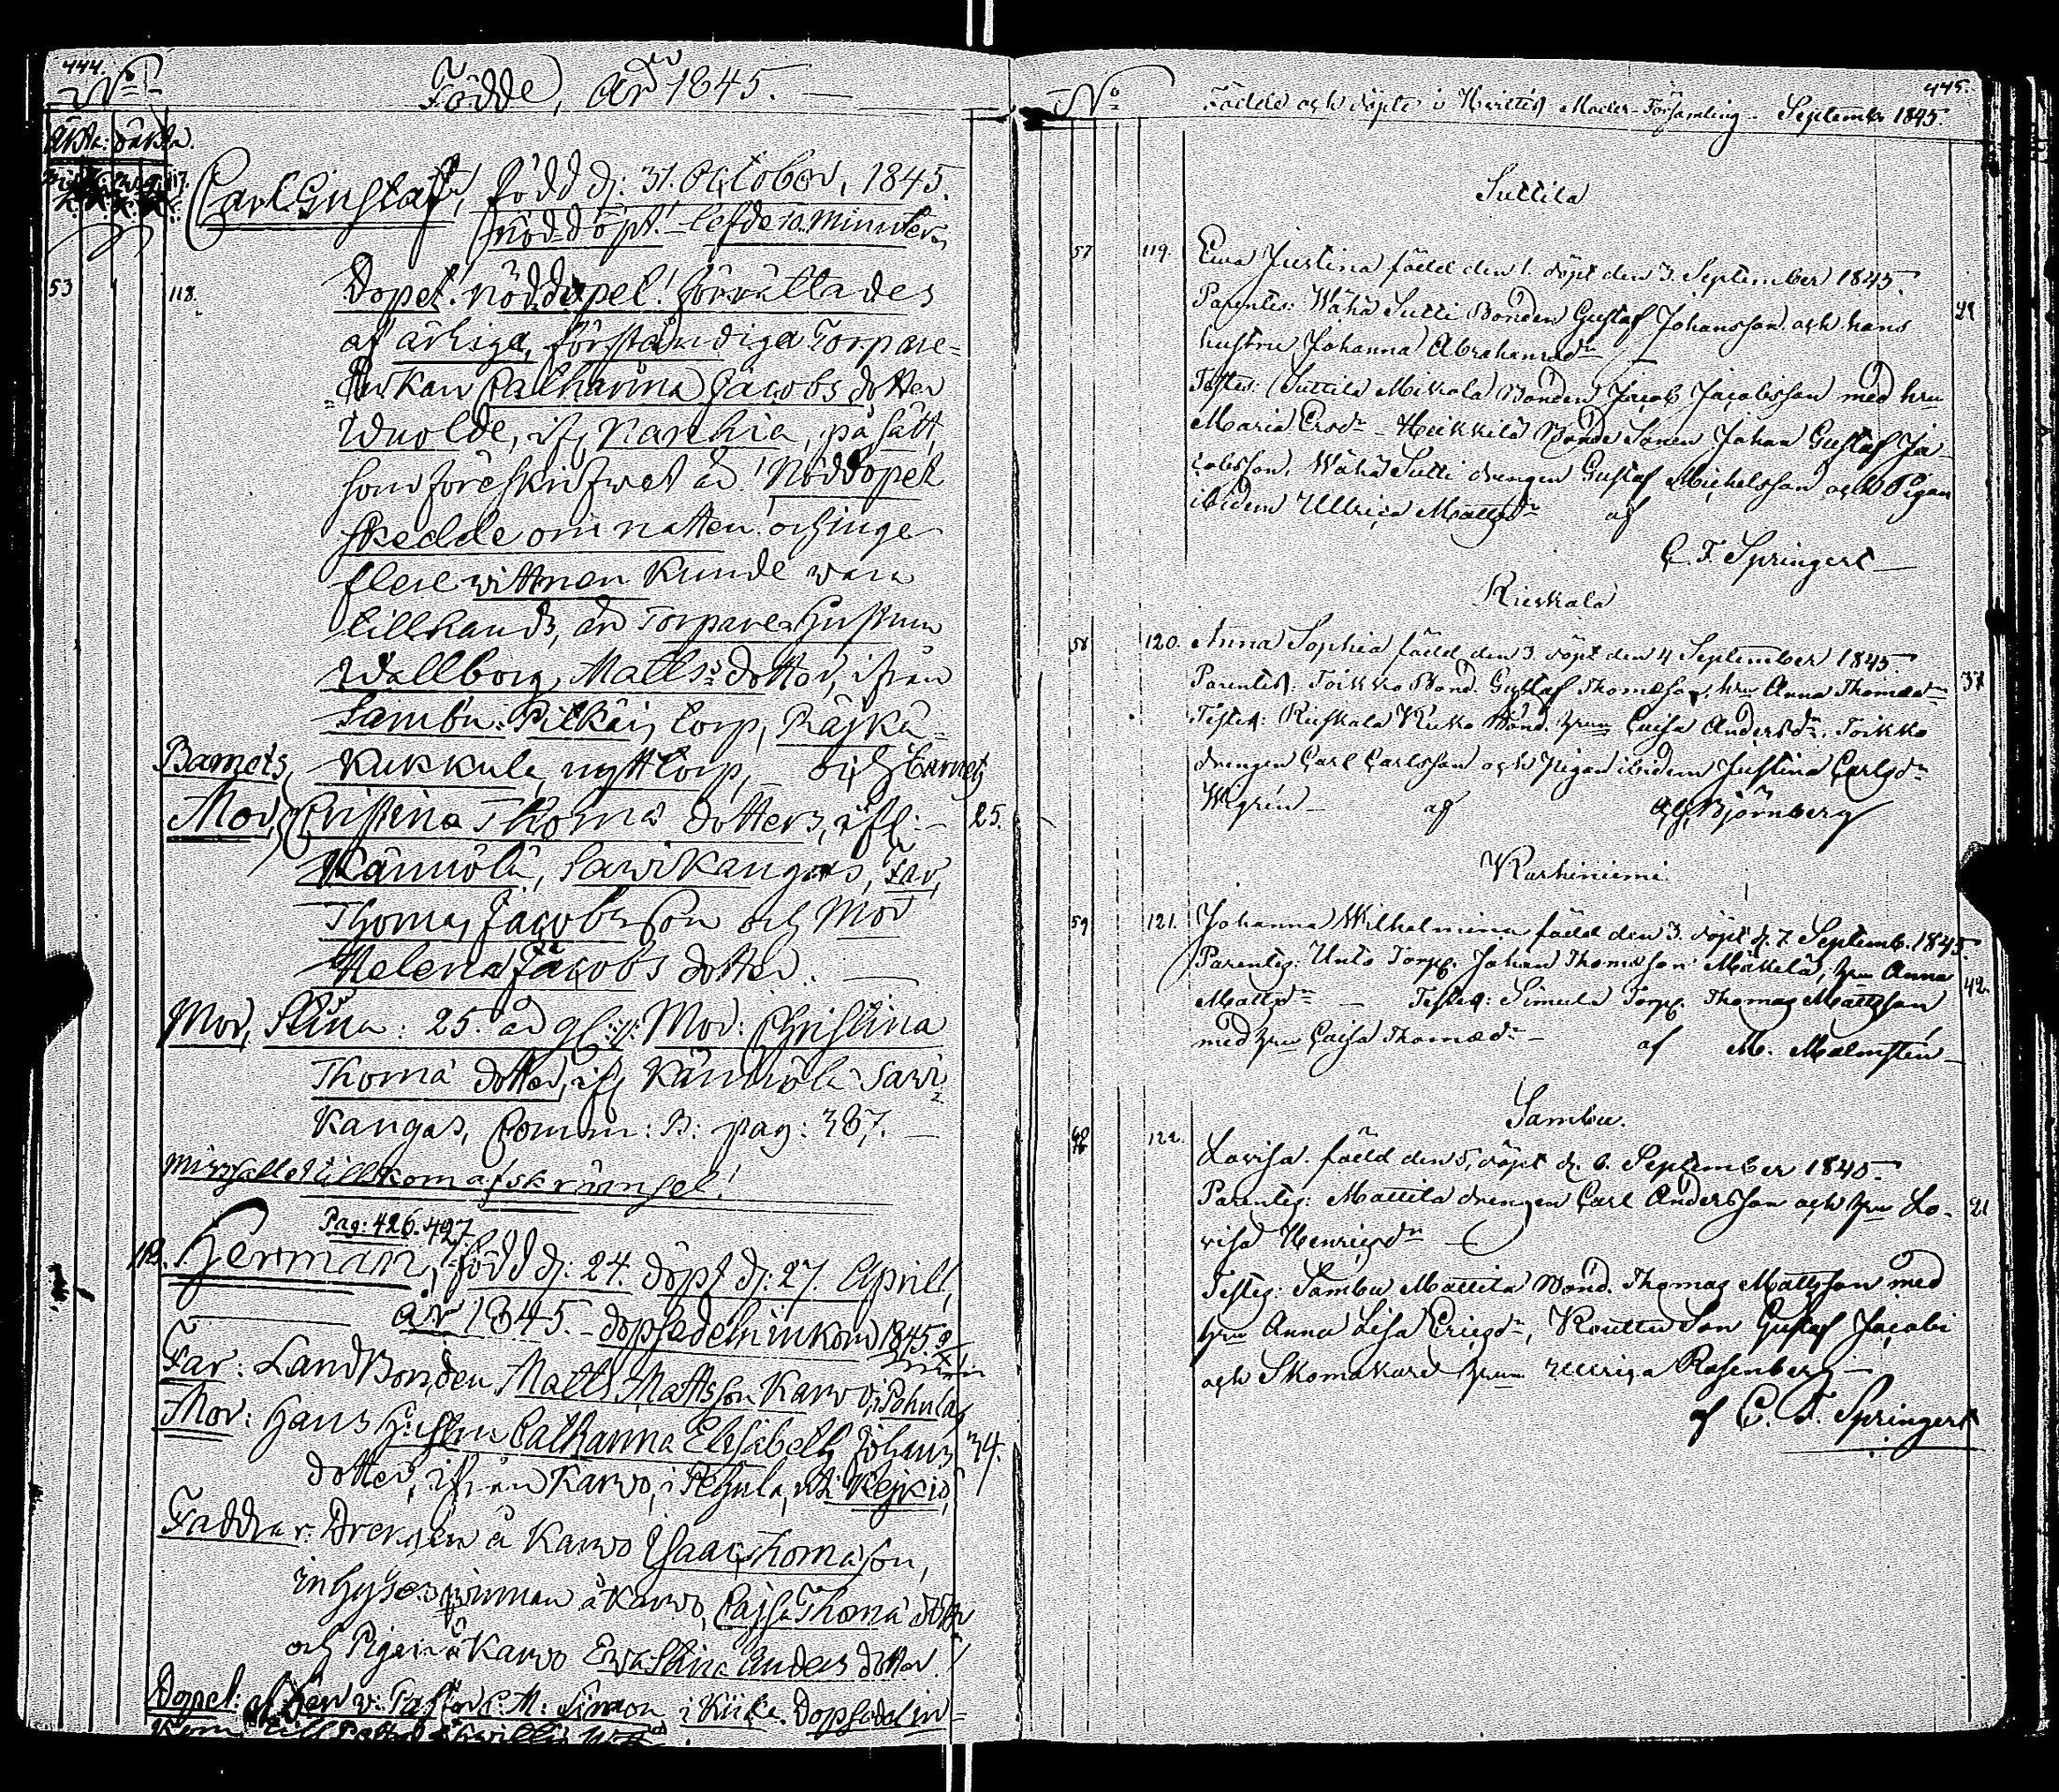 444.
No
Födde, år 1845.
Äkta: oäkta.
117.
Carl Gustaf, född d: 31. October, 1845.
nöddöpt! lefde 10. minuter.
53 118.
Dopet! nöddopet! förrättades
af ärliga, förståndiga Torpare-
Catharina Jacobs dotter
ifr Karhia, på sätt,
som föreskrifwet är! Nöddopet
skedde om natten! och inge
flere wittnen kunde wara
tillhands, än Torpare Hustrun
Wallborg Matts dotter, ifrån
Sambu Pilkäin torp,
Barnets Kukkula nytt torp, och Barnets
Mor, Christina Thomas dotters, ifr: 25.
Kännölä, Sawikangas, Far,
Thomas Jacobsson och Mor
Helena Jacobs dotter.
Mor, Stina: 25. år gl: Mor: Christina
Thomä dotter, ifr Kännölä Sawi-
kangas, Comm: B: pag: 387.
Pag: 426. 427.
118. Herman, född d: 24. döpt d: 27. Aprill,
år 1845. dopsedeln inkom 1845
Far: Landbonden Matts Mattsson Karwo i Pehula
Mor: hans Hustru Catharina Elisabeth Johans 34.
dotter, ifrån Karwo, i Pehula,
Faddrar: Drengen å Karwo Isaac Thomäson,
inhyses qwinnan å Karwo, Cajsa Thomä dotter
och Pigan å Karwo Ewa Stina Anders dotter.
Dopet: af Herr v: Pastor C. M: i Kiika. Dopsedel in-
445.
No Födde och döpte i Hvittis Moder-Församling. September 1845.
Suttila
57 119. Ewa Justina född den 1. döpt den 3. September 1845.
Parentes: Wähä Sutti Bonden Gustaf Johansson och hans 29
hustru Johanna Abrahamsdr
Testes: Suttila Mikola Bonden Jacob Jacobsson med hru
Maria Ersdr - Heikkilä Bonde Sonen Johan Gustaf Ja-
cobsson, Wähä Sutti drengen Gustaf Michelsson och Pigan
ibidem Ullrica Mattsdr af
C. F. Springert
Rieskala
58 120. Anna Sophia född den 3. döpt den 4 September 1845.
Parentes: Toikko Bond. Gustaf Thomasson, hru Anna Thomædr 37
Testes: Rieskala Bond. hrun Caisa Andersdr. Toikko
drengen Carl Carlsson och Pigan ibidem Justina Carlsdr
Wigrén af Björnberg
Karhiniemi
59 121. Johanna Wilhelmina född den 3. döpt d. 7. Septemb. 1845.
Parentes: Unto Torp. Johan Thomasson Mäkelä, hru Anna
Mattsdr - Testes: Simula Torp. Thomas Mattsson 42.
med hru Caisa Thomædr af M. Malmstén
Sambu.
122. Lovisa. född den 5, döpt d. 6. September 1845
Parentes: Mattila drengen Carl Andersson och hru Lo- 21
visa Henricsdr
Testes: Sambu Mattila Bond. Thomas Mattsson med
hru Anna Lisa Ericsdr, Son Gustaf Jacobi
och Skomakare hrun Ullrica Rosenberg
af C. F. Springert